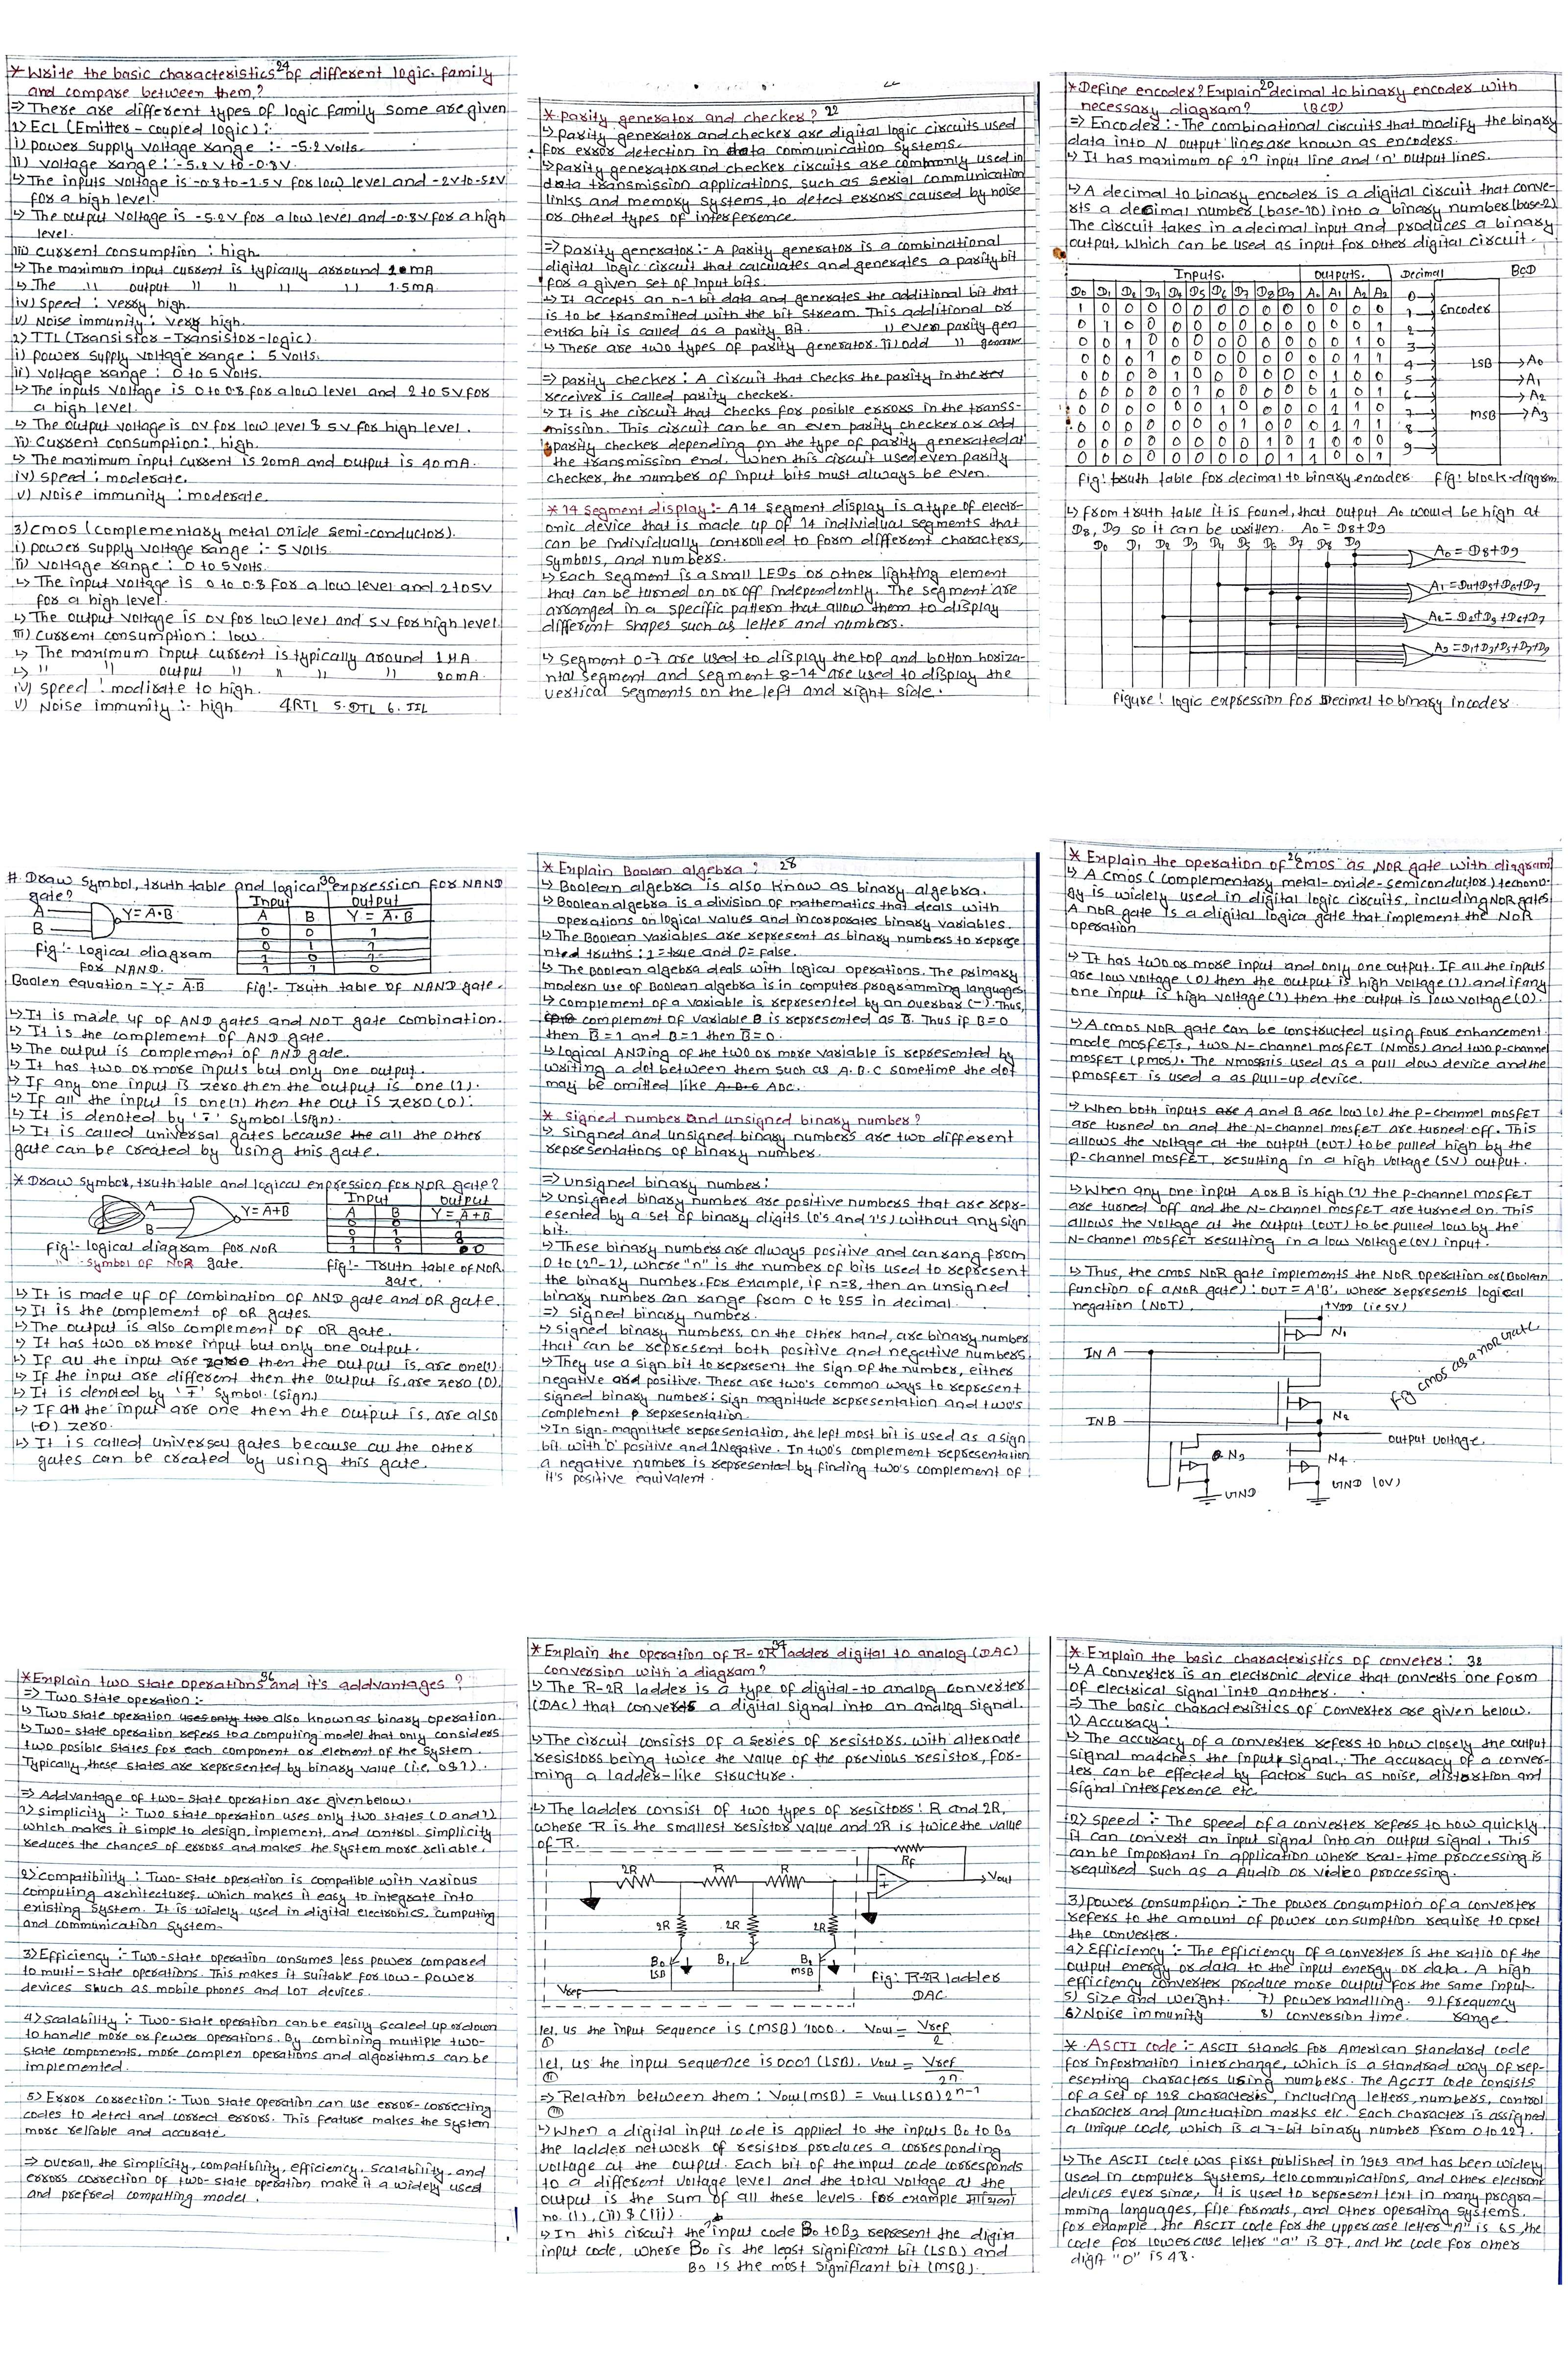 24
* Write the basic characteristics of different logic family
and compare between them?
=> There are different types of logic family some are given
1) ECL (Emitter - coupled logic) :-
i) power supply voltage range :- -5.2 volts.
ii) voltage range :- -5.2 V to -0.8V.
↳ The inputs voltage is -0.8 to -1.5 V for low level and -2V to -5.2V
for a high level.
↳ The output voltage is -5.2V for a low level and -0.8V for a high
level.
iii) current consumption : high.
↳ The maximum input current is typically arround
↳ The " output " " " " 1.5mA.
iv) speed : verry high.
v) Noise immunity : very high.
2) TTL (Transistor - Transistor - logic).
i) power supply voltage range : 5 volts.
ii) voltage range : 0 to 5 volts.
↳ The inputs voltage is 0 to 0.8 for a low level and 2 to 5V for
a high level.
↳ The output voltage is 0V for low level & 5V for high level.
iii) Current consumption : high.
↳ The maximum input current is 20mA and output is 40mA.
iv) speed : moderate.
v) Noise immunity : moderate.
3) cmos (complementary metal oxide semi-conductor).
i) power supply voltage range :- 5 volts.
ii) voltage range : 0 to 5 volts.
↳ The input voltage is 0 to 0.8 for a low level and 2 to 5V
for a high level.
↳ The output voltage is 0V for low level and 5V for high level
iii) current consumption : low.
↳ The maximum input current is typically around 1
↳ " " output " " " " 20mA.
iv) speed : modirate to high.
v) Noise immunity :- high 4. RTL 5. DTL 6. IIL
* parity generator and checker? 22
↳ parity generator and checker are digital logic circuits used
for error detection in data communication systems.
↳ parity generator and checker circuits are commonly used in
data transmission applications, such as serial communication
links and memory systems, to detect errors caused by noise
or othed types of interference.
=> parity generator :- A parity generator is a combinational
digital logic circuit that calculates and generates a parity bit
for a given set of input bits.
↳ It accepts an n-1 bit data and generates the additional bit that
is to be transmitted with the bit stream. This additional or
extra bit is called as a parity Bit. i) even parity gen
↳ There are two types of parity generator. ii) odd "
=> parity checker : A circuit that checks the parity in the
receiver is called parity checker.
↳ It is the circuit that checks for posible errors in the transs-
mission. This circuit can be an even parity checker or odd
parity checker depending on the type of parity generated at
the transmission end. When this circuit used even parity
checker, the number of input bits must always be even.
* 14 segment display :- A 14 segment display is a type of electr-
onic device that is made up of 14 individual segments that
can be individually controlled to form different characters,
symbols, and numbers.
↳ Each segment is a small LEDs or other lighting element
that can be turned on or off independently. The segment are
arranged in a specific pattern that allow them to display
different shapes such as letter and numbers.
↳ segment 0-7 are used to display the top and botton horizo-
ntal segment and segment 8-14 are used to display the
vertical segments on the left and right side.
20
* Define encoder? Explain decimal to binary encoder with
necessary diagram? (BCD)
=> Encoder :- The combinational circuits that modify the binary
data into N output lines are known as encoders.
↳ It has maximum of 2n input line and 'n' output lines.
↳ A decimal to binary encoder is a digital circuit that conve-
rts a decimal number (base-10) into a binary number (base-2)
The circuit takes in a decimal input and produces a binary
output, which can be used as input for other digital circuit.
Inputs. outputs. Decimal BCD
D0 D1 D2 D3 D4 D5 D6 D7 D8 D9 A0 A1 A2 A3
1 0 0 0 0 0 0 0 0 0 0 0 0 0
0 1 0 0 0 0 0 0 0 0 0 0 0 1
0 0 1 0 0 0 0 0 0 0 0 0 1 0
0 0 0 1 0 0 0 0 0 0 0 0 1 1
0 0 0 0 1 0 0 0 0 0 0 1 0 0
0 0 0 0 0 1 0 0 0 0 0 1 0 1
0 0 0 0 0 0 1 0 0 0 0 1 1 0
0 0 0 0 0 0 0 1 0 0 0 1 1 1
0 0 0 0 0 0 0 0 1 0 1 0 0 0
0 0 0 0 0 0 0 0 0 1 1 0 0 1
0 1 2 3 4 5 6 7 8 9
Encoder
LSB → A0
→ A1
→ A2
MSB → A3
fig! truth table for decimal to binary encoder fig! block-diagram
↳ from truth table it is found, that output A0 would be high at
D8, D9 so it can be written. A0 = D8+D9
D0 D1 D2 D3 D4 D5 D6 D7 D8 D9
A0 = D8+D9
A1 = D4+D5+D6+D7
A2 = D2+D3+D6+D7
A3 = D1+D3+D5+D7+D9
figure! logic expression for Decimal to binary incoder
30
#. Draw symbol, truth table and logical expression for NAND
gate?
A B Y=A·B
Input output
A B Y = A·B
0 0 1
0 1 1
1 0 1
1 1 0
fig!- Logical diagram
for NAND.
Boolen equation = Y = A·B fig!- Truth table of NAND gate.
↳ It is made up of AND gates and NOT gate combination.
↳ It is the complement of AND gate.
↳ The output is complement of AND gate.
↳ It has two or more inputs but only one output.
↳ If any one input is zero then the output is one (1).
↳ If all the input is one(1) then the out is zero (0).
↳ It is denoted by symbol (sign).
↳ It is called universal gates because the all the other
gate can be created by using this gate.
* Draw symbol, truth table and logical expression for NOR gate?
A B Y=A+B
Input output
A B Y = A+B
fig!- logical diagram for NOR
symbol of NOR gate. fig!- Truth table of NOR
gate.
↳ It is made up of combination of AND gate and OR gate.
↳ It is the complement of OR gates.
↳ The output is also complement of OR gate.
↳ It has two or more input but only one output.
↳ If all the input are zero then the output is, are one(1)
↳ If the input are different then the output is, are zero (0).
↳ It is denoted by symbol (sign)
↳ If all the input are one then the output is, are also
(0) zero.
↳ It is called universal gates because all the other
gates can be created by using this gate.
* Explain Boolean algebra? 28
↳ Boolean algebra is also know as binary algebra.
↳ Boolean algebra is a division of mathematics that deals with
operations on logical values and incorporates binary variables.
↳ The Boolean variables are represent as binary numbers to represe
nted truths : 1 = true and 0 = false.
↳ The boolean algebra deals with logical operations. The primary
modern use of Boolean algebra is in computer programming languages
↳ complement of a variable is represented by an overbar (-). Thus,
complement of variable B is represented as B̅. Thus if B=0
then B̅=1 and B=1 then B̅=0.
↳ Logical ANDing of the two or more variable is represented by
writing a dot between them such as A.B.C sometime the dot
may be omitted like A.B.C ABC.
* signed number and unsigned binary number?
↳ Singned and unsigned binary numbers are two different
representations of binary number.
=> unsigned binary number :
↳ unsigned binary number are positive numbers that are repr-
esented by a set of binary digits (0's and 1's) without any sign
bit.
↳ These binary numbers are always positive and can rang from
0 to (2n-1), where "n" is the number of bits used to represent
the binary number. for example, if n=8, then an unsigned
binary number can range from 0 to 255 in decimal.
=> signed binary number.
↳ signed binary numbers, on the other hand, are binary number
that can be represent both positive and negative numbers.
↳ They use a sign bit to represent the sign of the number, either
negative and positive. There are two's common ways to represent
signed binary number: sign magnitude representation and two's
complement representation.
↳ In sign-magnitude representation, the left most bit is used as a sign
bit with '0' positive and 1 Negative. In two's complement representation
a negative number is represented by finding two's complement of
it's positive equivalent.
26
* Explain the operation of cmos as NOR gate with diagram
↳ A cmos (complementary metal-oxide-semiconductor) techono-
gy is widely used in digital logic circuits, including NOR gates
A noR gate is a digital logica gate that implement the NOR
operation
↳ It has two or more input and only one output. If all the inputs
are low voltage (0) then the output is high voltage (1) and if any
one input is high voltage (1) then the output is low voltage (0).
↳ A cmos NOR gate can be constructed using four enhancement
mode mosfETs, two N-channel mosfet (Nmos) and two p-channel
mosfet (pmos). The Nmosfet is used as a pull dow device and the
pmosfET is used a as pull-up device.
↳ When both inputs are A and B are low (0) the p-channel mosfET
are turned on and the N-channel mosfET are turned off. This
allows the voltage at the output (OUT) to be pulled high by the
p-channel mosfET, resulting in a high voltage (5V) output.
↳ When any one input A or B is high (1) the p-channel mosfET
are turned off and the N-channel mosfET are turned on. This
allows the voltage at the output (OUT) to be pulled low by the
N-channel mosfET resulting in a low voltage (0V) input.
↳ Thus, the cmos NOR gate implements the NOR operation or (Boolean
function of a NOR gate) : OUT = A'B', where represents logical
negation (NOT).
+VDD (i.e 5V)
N1
IN A
N2
IN B
output voltage.
N3
N4
GND
GND (0V)
fig cmos as a nor gate
36
* Explain two state operations and it's addvantages?
=> Two state operation :-
↳ Two state operation uses only two also known as binary operation.
↳ Two-state operation refers to a computing model that only considers
two posible states for each component or element of the system.
Typically, these states are represented by binary value (i.e, 0 & 1).
=> Addvantage of two-state operation are given below.
1) simplicity :- Two state operation uses only two states (0 and 1)
which makes it simple to design, implement, and control. simplicity
reduces the chances of errors and makes the system more reliable.
2) compatibility : Two-state operation is compatible with various
computing architectures, which makes it easy to integrate into
existing system. It is widely used in digital electronics, cumputing
and communication system.
3) Efficiency :- Two-state operation consumes less power compared
to multi-state operations. This makes it suitable for low-power
devices shuch as mobile phones and LOT devices.
4) scalability :- Two-state operation can be easily scaled up or down
to handle more or fewer operations. By combining multiple two-
state components, more complex operations and algorithms can be
implemented.
5) Error correction :- Two state operation can use error-correcting
codes to detect and correct errors. This feature makes the system
more reliable and accurate.
=> overall, the simplicity, compatibility, efficiency, scalability, and
errors correction of two-state operation make it a widely used
and prefred computting model.
34
* Explain the operation of R-2R ladder digital to analog (DAC)
conversion with a diagram?
↳ The R-2R ladder is a type of digital-to analog converter
(DAC) that converts a digital signal into an analog signal.
↳ The circuit consists of a series of resistors, with alternate
resistors being twice the value of the previous resistor, for-
ming a ladder-like structure.
↳ The ladder consist of two types of resistors : R and 2R,
where R is the smallest resistor value and 2R is twice the value
of R.
2R R R Rf
Vout
2R 2R 2R
B0 LSB B1 MSB
Vref
fig: R-2R ladder
DAC.
let, us the input sequence is (MSB) 1000. Vout = Vref/2
(i)
let, us the input sequence is 0001 (LSB). Vout = Vref/2n
(ii)
=> Relation between them : Vout (MSB) = Vout (LSB) 2n-1
(iii)
↳ When a digital input code is applied to the inputs B0 to B3
the ladder network of resistor produces a corresponding
voltage at the output. Each bit of the input code corresponds
to a different voltage level and the total voltage at the
output is the sum of all these levels. for example
no. (i), (ii) & (iii).
↳ In this circuit the input code B0 to B3 represent the digita
input code, where B0 is the least significant bit (LSB) and
B3 is the most significant bit (MSB).
* Explain the basic characteristics of conveter : 32
↳ A converter is an electronic device that converts one form
of electrical signal into another.
=> The basic characteristics of converter are given below.
1) Accuracy :
↳ The accuracy of a converter refers to how closely the output
signal matches the input signal. The accuracy of a conver-
ter can be effected by factor such as noise, distortion and
signal interference etc.
2) speed :- The speed of a converter refers to how quickly
it can convert an input signal into an output signal. This
can be important in application where real-time proccessing is
required such as a Audio or video proccessing.
3) power consumption :- The power consumption of a converter
refers to the amount of power consumption require to opret
the converter.
4) Efficiency :- The efficiency of a converter is the ratio of the
output energy or data to the input energy or data. A high
efficiency converter produce more output for the same input.
5) Size and weight. 7) power handlling. 9) frequency
6) Noise immunity 8) conversion time. range.
* ASCII code :- ASCII stands for American standard code
for information interchange, which is a standrad way of rep-
esenting characters using numbers. The ASCII code consists
of a set of 128 characters, including letters, numbers, control
character and punctuation marks etc. Each character is assigned
a unique code, which is a 7-bit binary number from 0 to 127.
↳ The ASCII code was first published in 1963 and has been widely
used in computer systems, telocommunications, and other electroni
devices ever since, it is used to represent text in many progra-
mming languages, file formats, and other operating systems.
for example, the ASCII code for the uppercase letter "A" is 65, the
code for lowercase letter "a" is 97, and the code for other
digit "0" is 48.